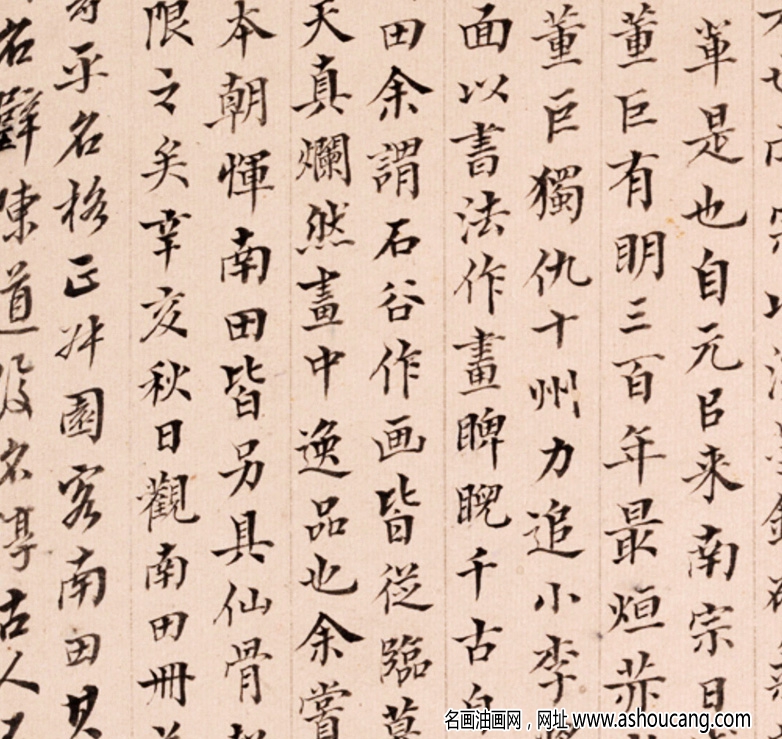 輩是也自元㠯来南宗日
董巨有明三百年最烜
董巨獨仇十州力追小李
面以書法作畫睥睨千古
田余謂石谷作画皆從臨
天真爛然畫中逸品也余嘗
本朝惲南田皆另具仙骨
限之矣辛亥秋日觀南田冊
乎名格正叔園客南田
陳道 名 古人
名画油画网，网址 www.ashoucang.com